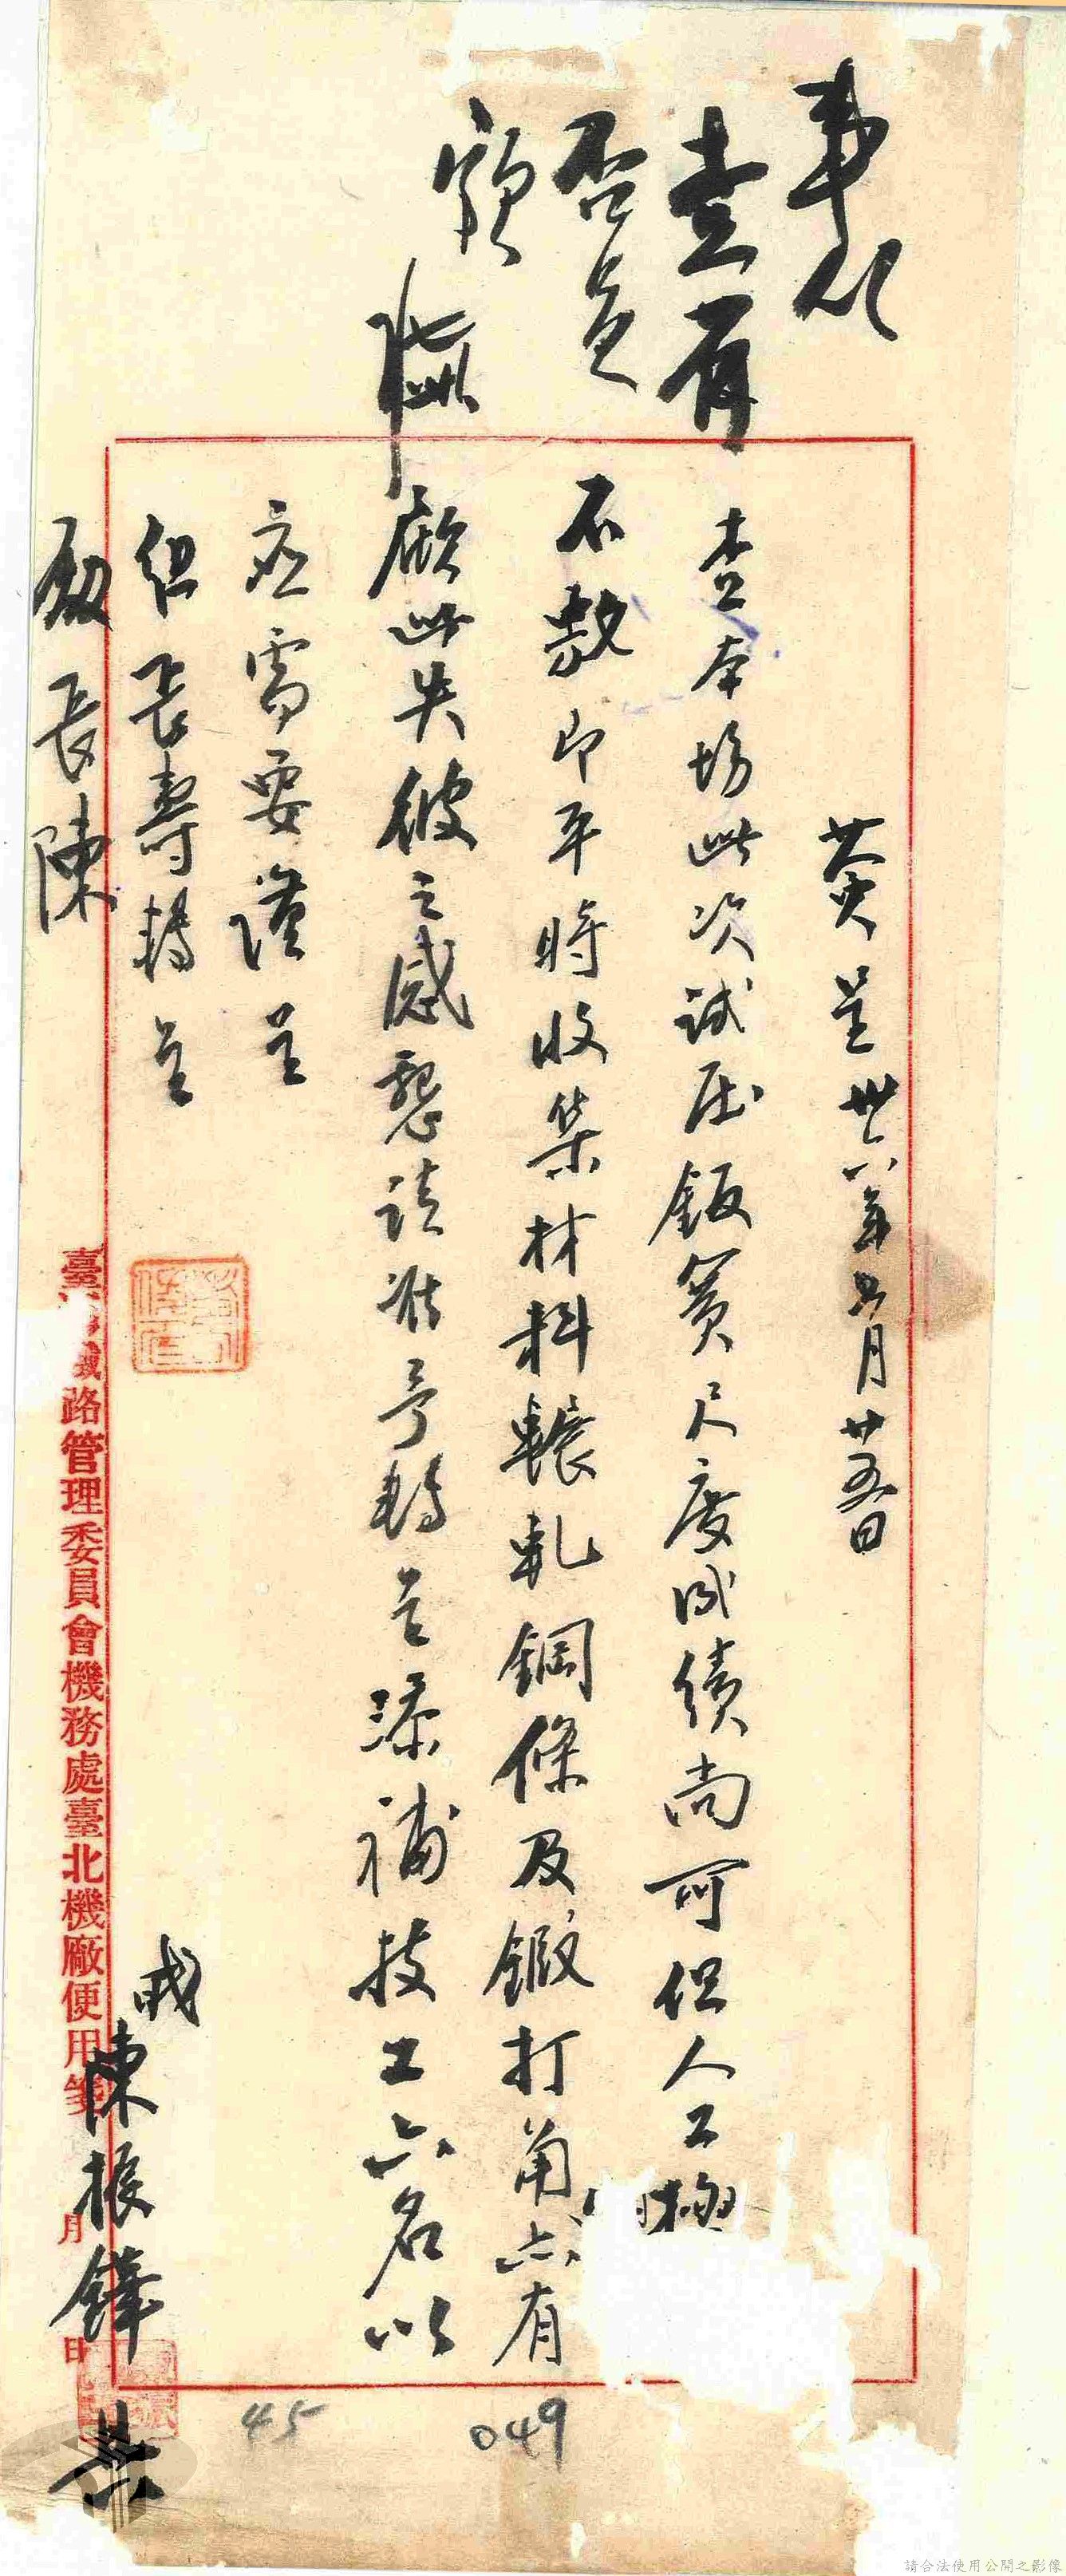 查有
否負
額
簽呈 卅六年五月廿五日
查本場此次試压鈑簧尺度成績尚可但人工極
不敷即平時收集材料輾軋鋼條及鍛打角亦有
顧此失彼之感懇請准予轉呈添補技工六名以
应需要謹呈
任長壽轉呈
廠長陳
職陳振鏵
臺 鐵路管理委員會機務處臺北機廠便用箋 月 日
45
049
請合法使用公開之影像